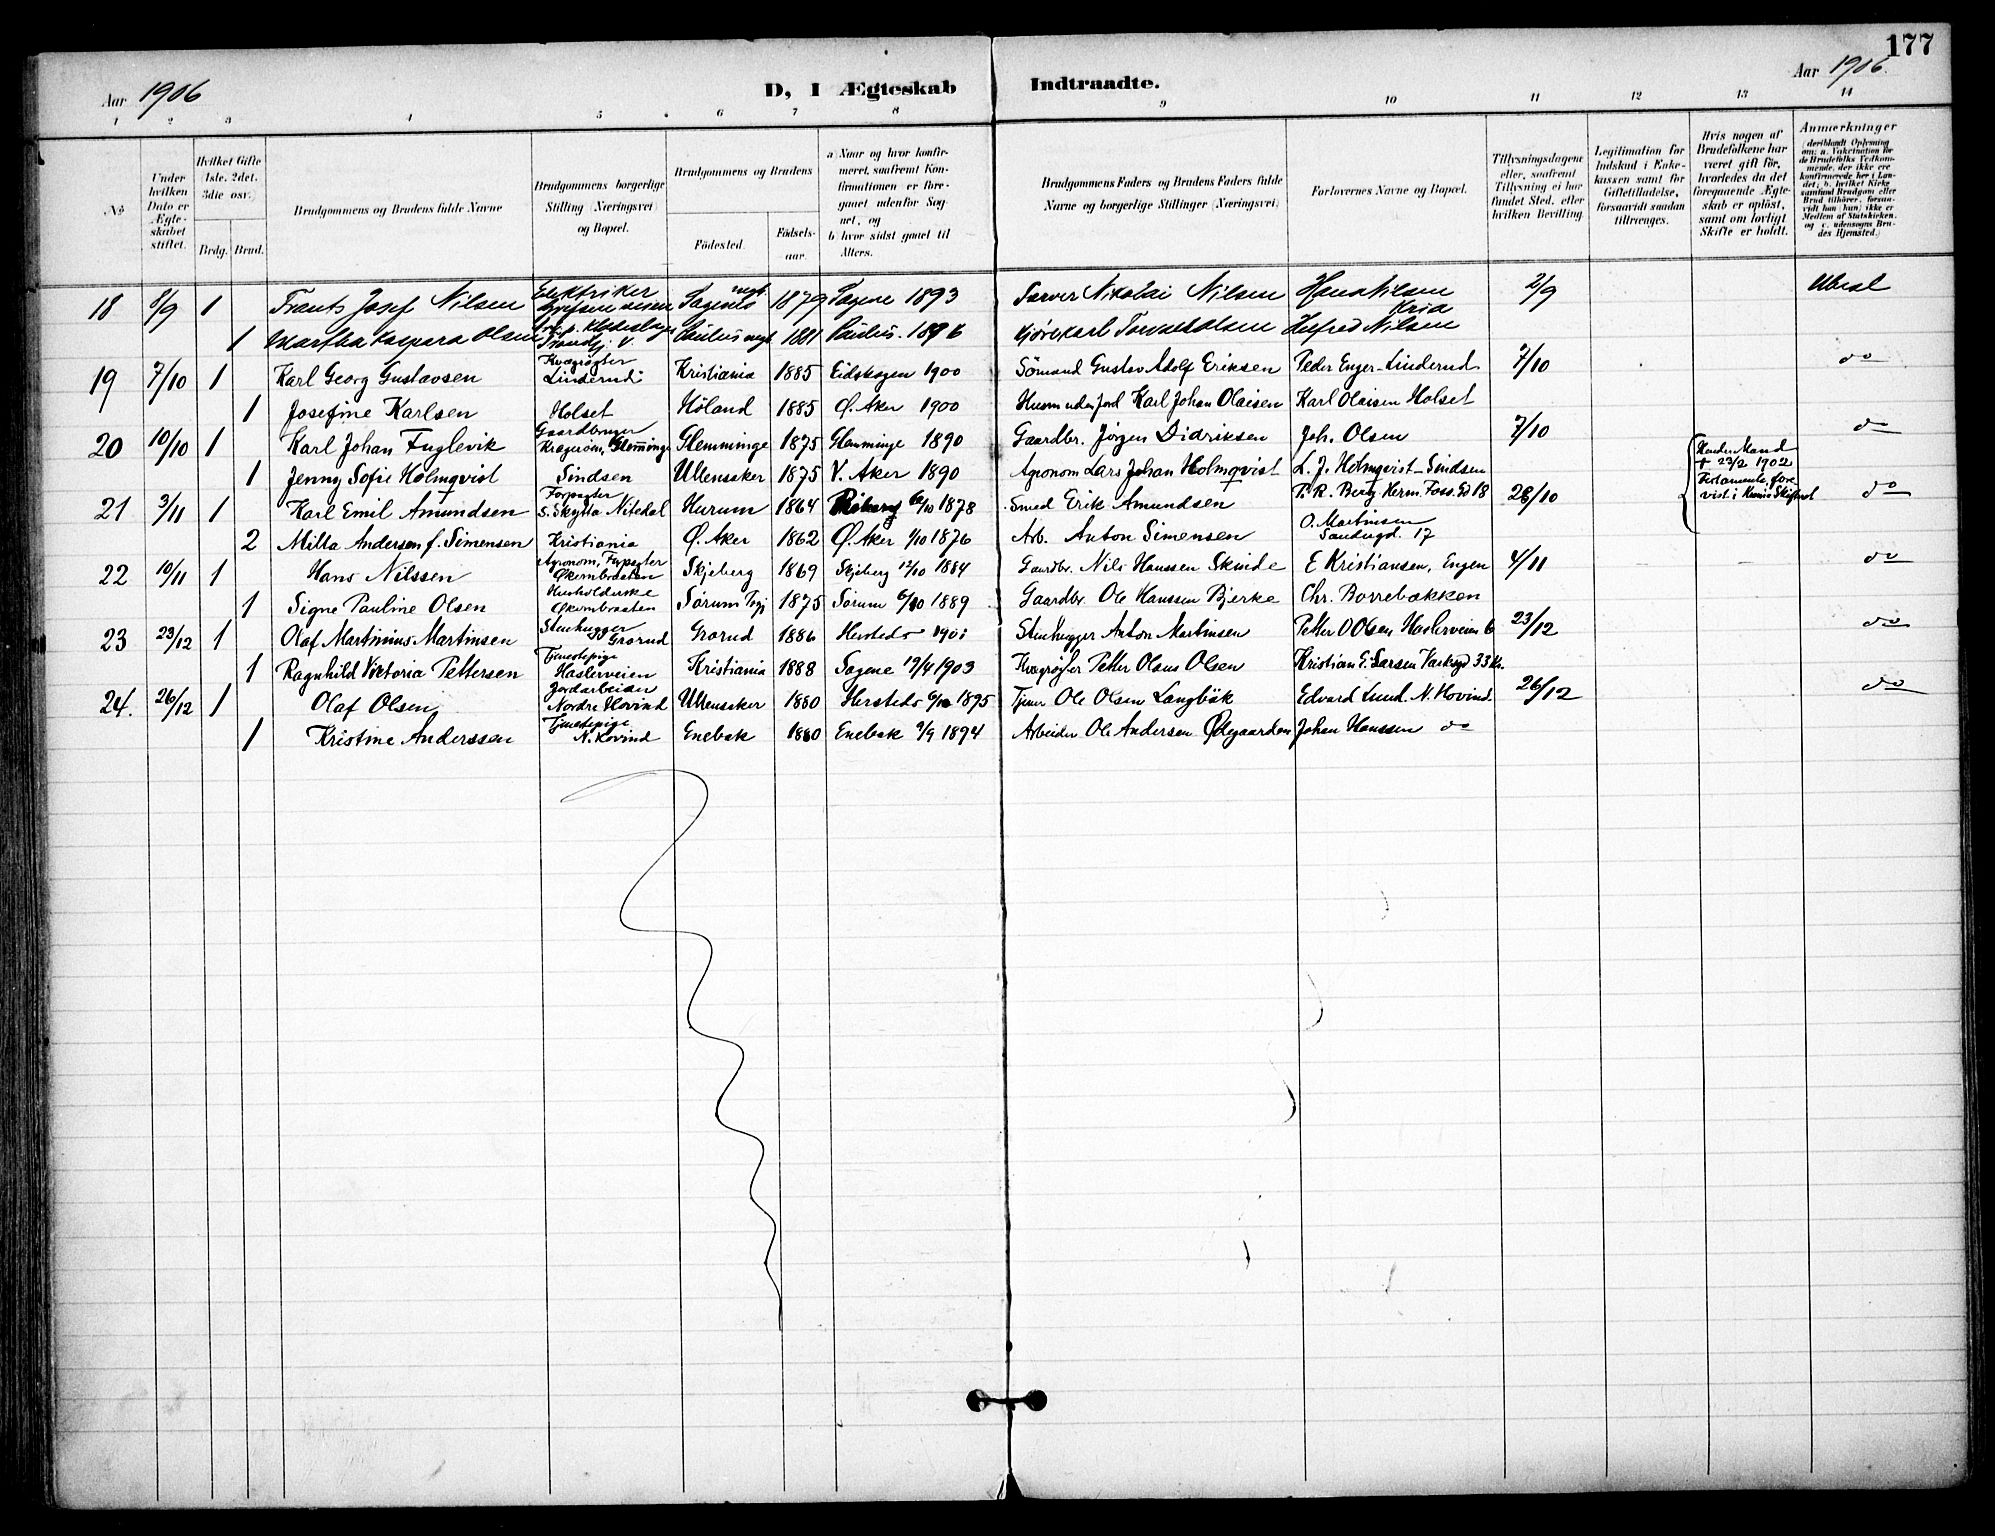 177
Aar 1906
D, I Ægteskab Indtraadte.
Aar 1906.
1 2 3 4 5 6 7 8 9 10 11 12 13 14
No
Under hvilken Dato er Ægteskabet stiftet.
Hvilket Gifte 1ste. 2det. 3die osv.
Brdg. Brud.
Brudgommens og Brudens fulde Navne
Brudgommens borgerlige Stilling (Næringsvei) og Bopæl.
Brudgommens og Brudens
Födested.
Födselsaar.
a) Naar og hvor konfirmeret, saafremt Konfirmationen er foregaaet udenfor Sognet, og
b) hvor sidst gaaet til Alters.
Brudgommens Faders og Brudens Faders fulde Navne og borgerlige Stillinger (Næringsvei)
Forlovernes Navne og Bopæl.
Tillysningsdagene eller, saafremt Tillysning ei har fundet Sted, efter hvilken Bevilling.
Legitimation for Indskud i Enkekassen samt för Giftetilladelse, forsaavidt saadan tiltrænges.
Hvis nogen af Brudefolkene har været gift för, hvorledes da det foregaaende Ægteskab er oplöst, samt om lovligt Skifte er holdt.
Anmærkninger
18 8/9 1 Frants Josef Nilsen Elektriker Sagene 1879 Sagene 1893 Nikolai Nilsen Hans Nilsen Kria 2/9 Ubesl
1 Martha Kaspara Olsen Paulus 1881 Paulus 1896 Kjörekarl Olsen Nilsen
19 7/10 1 Karl Georg Gustavsen Linderud Kristiania 1885 Eidskogen 1900 Sömand Gustav Adolf Eriksen Peder Enger - Linderud 7/10 do
1 Josefine Karlsen Holset Höland 1885 Ö. Aker 1900 Husm. uden jord Karl Johan Olaisen Karl Olaisen Holset
20 10/10 1 Karl Johan Fuglevik Gaardbruger Glemminge Glemminge 1875 Glemminge 1890 Gaardbr. Jörgen Didriksen Joh. Olsen 7/10 do
1 Jenny Sofie Holmqvist Sindsen Ullensaker 1875 V. Aker 1890 Agronom Lars Johan Holmqvist L. J. Holmqvist - Sindsen
21 3/11 1 Karl Emil Amundsen Forpagter S. Skytta Nitedal Hurum 1864 6/10 1878 Smed Erik Amundsen P. R. Berg Herm. Foss. Gd 18 28/10 Hendes Mand + 23/2 1902 do
2 Milla Andersen f. Simensen Kristiania Ö. Aker 1862 Ö. Aker 1/10 1876 Arb. Anton Simensen O. Martinsen 17
22 10/11 1 Hans Nilssen Agronom, Forpagter Økernbraaten Skjeberg 1869 Skjeberg 12/10 1884 Gaardbr. Nils Hanssen Skinde E Kristiansen, Engen 4/11 do
1 Signe Pauline Olsen Husholderske Økernbraaten Sörum 1875 Sörum 6/10 1889 Gaardbr. Ole Hanssen Bjerke Chr. Borrebakken
23 23/12 1 Olaf Martinius Martinsen Stenhugger Grorud Grorud 1886 Hersteds 1901 Stenhugger Anton Martinsen Petter O Olsen Haslerveien 6 23/12 do
1 Ragnhild Viktoria Pettersen Tjenestepige Haslerveien Kristiania 1888 Sagene 19/4 1903 Kvægrögter Petter Olaus Olsen Kristian G. Larsen 33
24. 26/12 1 Olaf Olsen Jordarbeider Nordre Hovind Ullensaker 1880 Hersteds 6/10 1895 Tjener Ole Olsen Langbäk Edvard Lund. N. Hovind. 26/12 do
1 Kristine Anderssen Tjenestepige N. Hovind Enebak 1880 Enebak 9/9 1894 Arbeider Ole Andersen Ødegaarden Johan Hanssen do